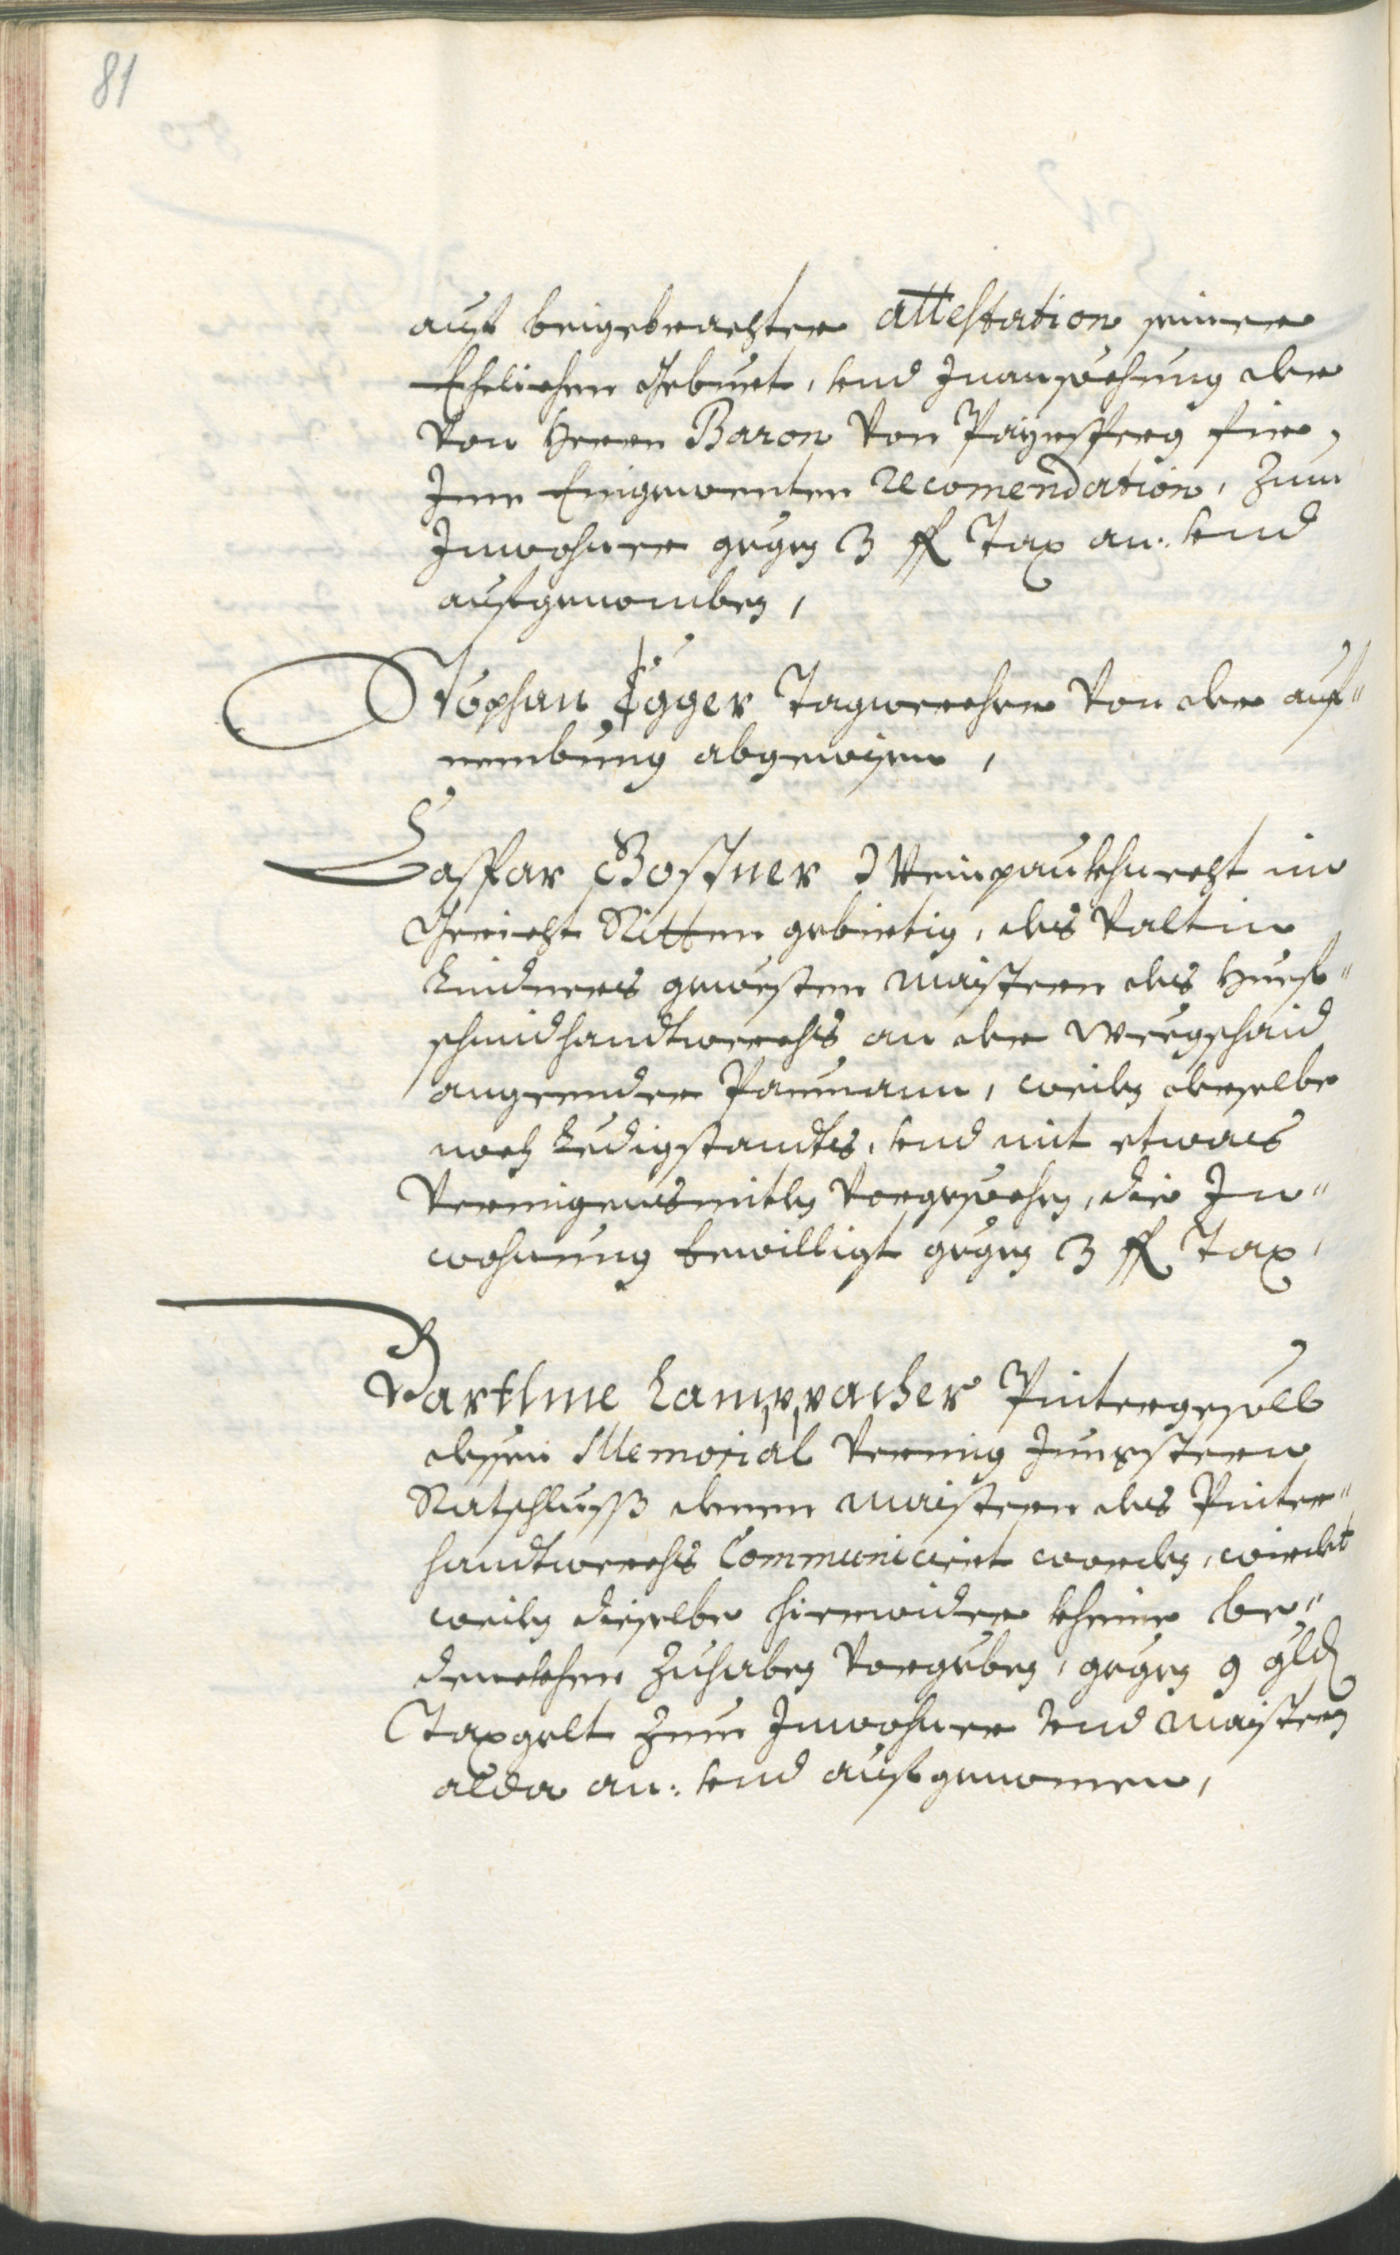 81
auf beigebrachter attestation seiner
Ehelichen Geburt, und Inansechung der
von Herrn Baron von Payrsperg für
Ime Eingewenten recomendation, zum
Inwohner gegen 3 fl Tax an: und
aufgenomben,
Stephan Egger Tagwercher von der auf"
nembung abgewisen,
Caspar Gostner Weinpaukhnecht im
Gericht Ritten gebirtig, des Valtin
Lindners gewesten maistern des Huef"
schmidhandtwerchs an der Wegschaid
angeender Paumann, weiln derselbe
noch Ledigstandts, und mit etwas
Vermigensmitln vorgesechen, die In"
wohnung bewilligt gegen 3 fl Tax,
Bartlme Lamppacher Pintergesöll
dessen Memorial vermig Jungstern
Ratschluss denen maistern des Pinter"
handtwerchs Communiciert worden, wirdet
weiln dieselbe hierwider kheine be"
denckhen zuhaben vorgeben, gegen 9 gld
Taxgelt zum Inwohner und maistern
alda an: und aufgenomen,